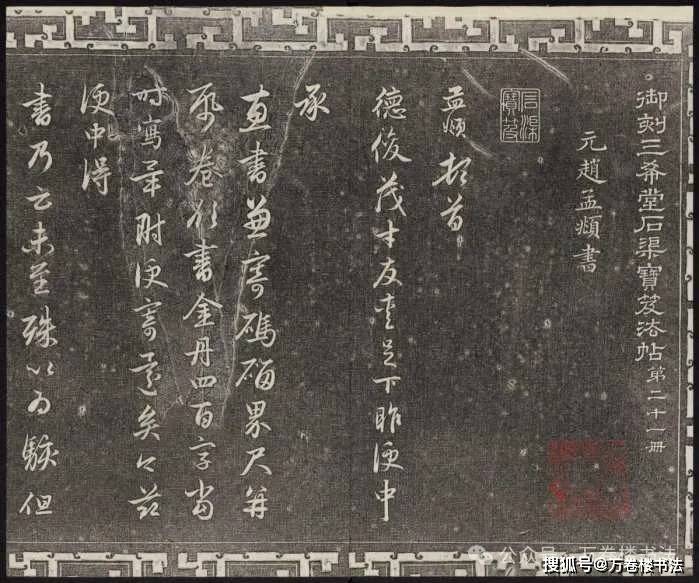 御刻三希堂石渠寶笈法帖第二十一冊
元趙孟頫書
石渠寶笈
孟頫頓首
德俊茂才友愛足下昨便中
承
惠書兼寄碼碯界尺并
紙卷欲書金丹四百字當
時寫畢附便寄還矣今茲
便中得
書乃云未至殊以為駭但
公众号·万卷楼书法
搜狐号@万卷楼书法